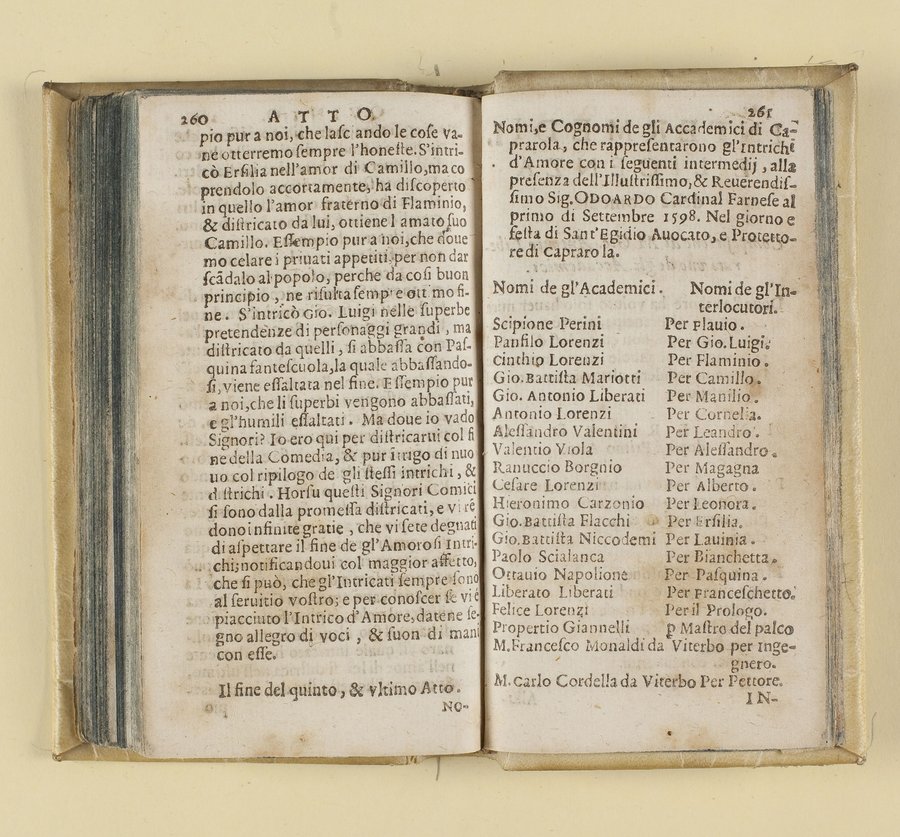 260 ATTO.
pio pur a noi, che lasc ando le cose va-
ne otterremo sempre l'honeste. S'intri-
cò Ersilia nell'amor di Camillo, ma co
prendolo accortamente, ha discoperto
in quello l'amor fraterno di Flaminio,
& districato da lui, ottiene l amato suo
Camillo. Essempio pur a noi, che doue
mo celare i priuati appetiti, per non dar
scãdalo al popolo, perche da così buon
principio, ne risulta semp e ott mo fi-
ne. S'intricò Gio. Luigi nelle superbe
pretendenze di personaggi grandi, ma
districato da quelli, si abbassa con Pas-
quina fantescuola, la quale abbassando-
si, viene essaltata nel fine. Essempio pur
a noi, che li superbi vengono abbassati,
e gl'humili essaltati. Ma doue io vado
Signori? Io ero qui per districarui col fi
ne della Comedia, & pur intrigo di nuo
uo col ripilogo de gli stessi intrichi, &
d strichi. Horsu questi Signori Comici
si sono dalla promessa districati, e vi rẽ
dono infinite gratie, che vi sete degnati
di aspettare il fine de gl'Amorosi Intri-
chi; notificandoui col maggior affetto,
che si può, che gl'Intricati sempre sono
al seruitio vostro; e per conoscer se vi è
piacciuto l'Intrico d'Amore, datene se-
gno allegro di voci, & suon di mani
con esse.
Il fine del quinto, & vltimo Atto.
NO-
261
Nomi, e Cognomi de gli Accademici di Ca-
prarola, che rappresentarono gl'Intrichi
d'Amore con i seguenti intermedij, alla
presenza dell'Illustrissimo, & Reuerendis-
simo Sig. ODOARDO Cardinal Farnese al
primo di Settembre 1598. Nel giorno e
festa di Sant'Egidio Auocato, e Protetto-
re di Capraro la.
Nomi de gl'Academici. Nomi de gl'In-
terlocutori.
Scipione Perini Per Flauio.
Panfilo Lorenzi Per Gio. Luigi.
Cinthio Lorenzi Per Flaminio.
Gio. Battista Mariotti Per Camillo.
Gio. Antonio Liberati Per Manilio.
Antonio Lorenzi Per Cornelia.
Alessandro Valentini Per Leandro.
Valentio Viola Per Alessandro.
Ranuccio Borgnio Per Magagna
Cesare Lorenzi Per Alberto.
Hieronimo Carzonio Per Leonora.
Gio. Battista Flacchi Per Ersilia.
Gio. Battista Niccodemi Per Lauinia.
Paolo Scialanca Per Bianchetta.
Ottauio Napolione Per Pasquina.
Liberato Liberati Per Franceschetto.
Felice Lorenzi Per il Prologo.
Propertio Giannelli p Mastro del palco
M. Francesco Monaldi da Viterbo per Inge-
gnero.
M. Carlo Cordella da Viterbo Per Pettore.
IN-